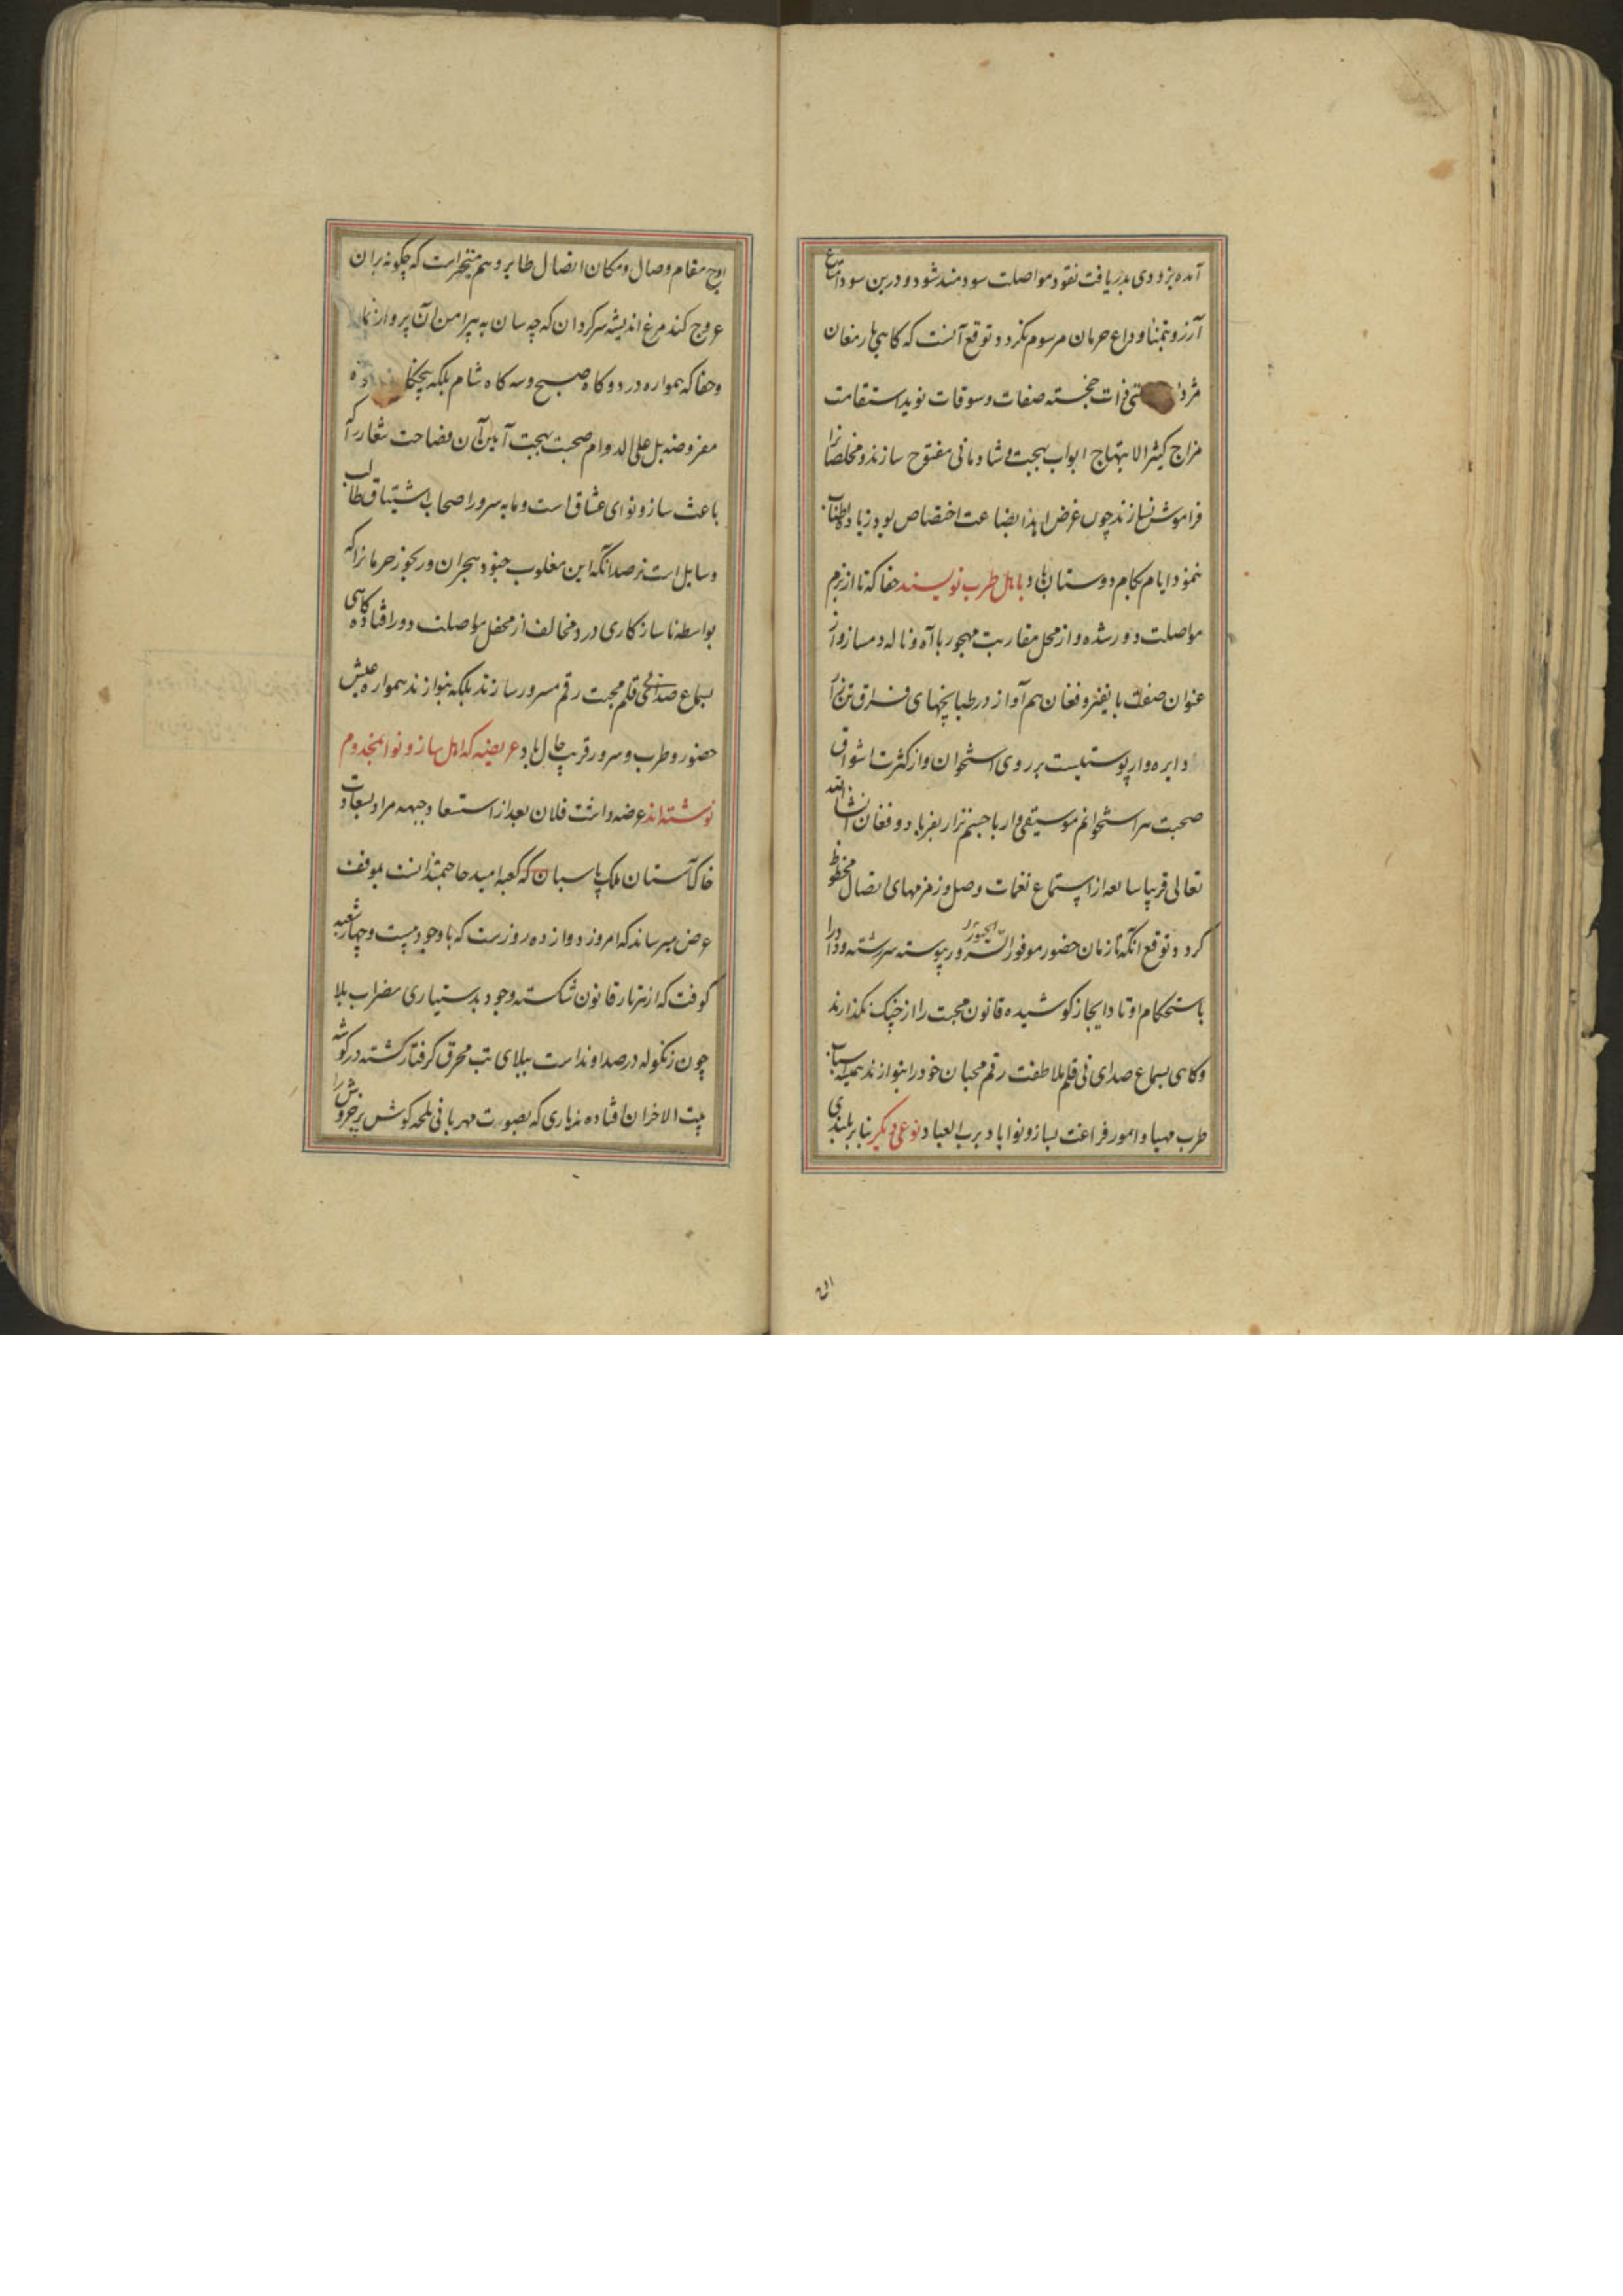 آمده بزودی بدریافت نقود مواصلت سودمند شود و درین سودا متاع
آرزو بتمنا و داع حرمان مرسوم نکردد و توقع آنست که کاهی بارمغان
مژدۀ ذات خجسته صفات و سوقات نوید استقامت
مزاج کثیر الابتهاج ابواب بهجت و شادمانی مفتوح سازند و مخلصانرا
فراموش نسازند چون غرض ابذا بضاعت اختصاص بود زیاده اطناب
ننمود ایام بکام دوستان باد باهل طرب نویسند حقا که تا از بزم
مواصلت دور شده و از محل مقاربت مهجور با آه و ناله دمساز و از
عنوان صفت با نفیر و فغان هم آواز در طپانچهای فراق تن
دایره وار پوستیست بر روی استخوان و از کثرت اشواق
صحبت سراستخوانم موسیقی وار با جسم نزار بفریاد و فغان انشاالله
تعالی قریبا ساعه از استماع نغمات وصل و زمزمهای اتصال محظوظ
کردد و توقع آنکه تا زمان حضور موفور السرور و الحبور پیوسته سررشته وداد را
باستحکام اوتاد ایجاز کوشیده قانون محبت را از چنک نکذارند
و کاهی بسماع صدای نی قلم ملاطفت رقم محبان خود را بنوازند همیشه اسباب
طرب مهیا و امور فراغت بساز و نوا باد برب العباد نوعی دیگر بنابر بلندی
اوج مقام وصال و مکان اتصال طایر وهم متحیر است که چکونه بران
عروج کند مرغ اندیشه سرکردان که چه سان به پیرامن آن پرواز نماید
و حقا که همواره در دوکاه صبح و سه کاه شام بلکه پنجکاه
مفروضه بل علی الدوام صحبت بهجت آیین آن فصاحت شعار را که
باعث ساز و نوای عشاق است و مایه سرور اصحاب اشتیاق طالب
و سایل است ترصد آنکه این مغلوب جنود هجران و رنجور حرمانرا که
بواسطه ناسازکاری درد مخالف از محفل مواصلت دور افتاده کاهی
بسماع صدای نی قلم محبت رقم مسرور سازند بلکه بنوازند همواره عیش
حضور و طرب و سرور قریب حال باد عریضه که اهل ساز و نوا بمخدوم
نوشته اند عرضه داشت فلان بعد از استسعاد جبهه مراد بسعادت
خاک آستان ملک پاسبان که کعبه امید حاجتمندانست بموقف
عرض میرساند که امروز دوازده روزست که با وجود بیست و چهار شعبه
کوفت که از هر تار قانون شکسته وجود بدستیاری مضراب بلا
چون زنکوله در صدا و نداست ببلای تب محرق کرفتار کشته در کوشه
بیت الاحزان افتاده نه یاری که بصورت مهربانی یلحه کوش پرخروش را
اوج